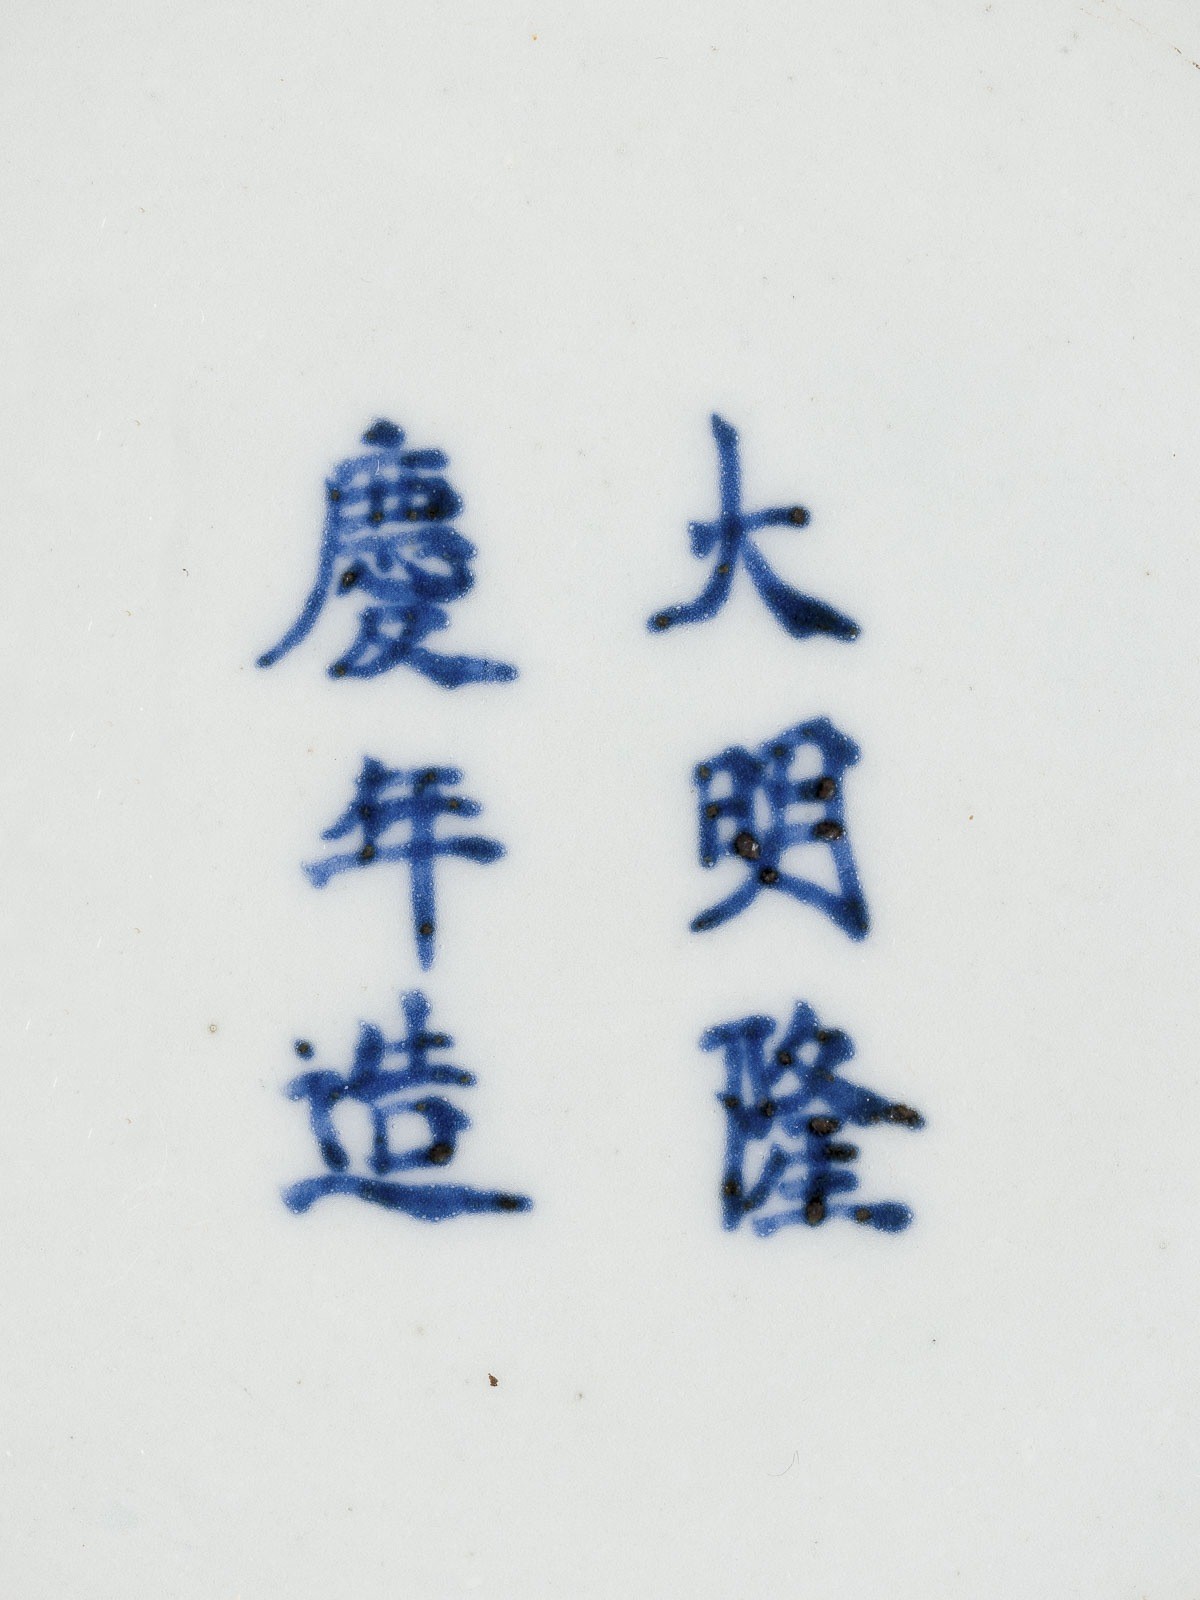 大明隆
慶年造